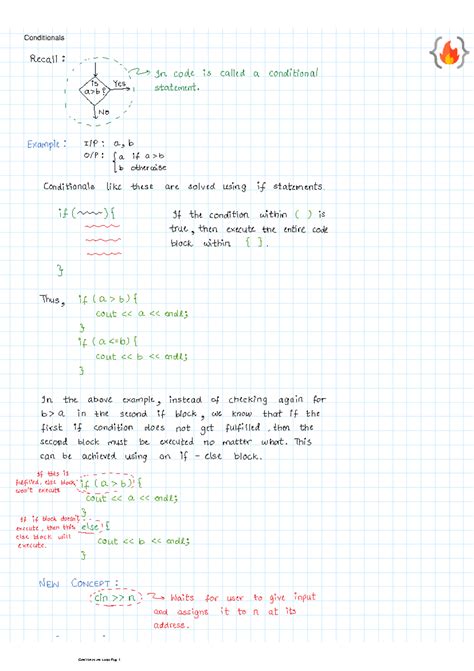 Conditionals
Recall :
is
a>b ?
Yes
No
In code is called a conditional
statement.
Example : I/P : a, b
O/P : { a if a>b
b otherwise
Conditionals like these are solved using if statements.
if ( ) {
}
If the condition within ( ) is
true, then execute the entire code
block within { }.
Thus, if (a > b) {
cout << a << endl;
}
if (a <= b) {
cout << b << endl;
}
In the above example, instead of checking again for
b > a in the second if block, we know that if the
first if condition does not get fulfilled, then the
second block must be executed no matter what. This
can be achieved using an if - else block.
If this is
fulfilled, else block
won't execute
if (a > b) {
cout << a << endl;
}
If if block doesn't
execute, then this
else block will
execute.
else {
cout << b << endl;
}
NEW CONCEPT :
cin >> n → Waits for user to give input
and assigns it to n at its
address.